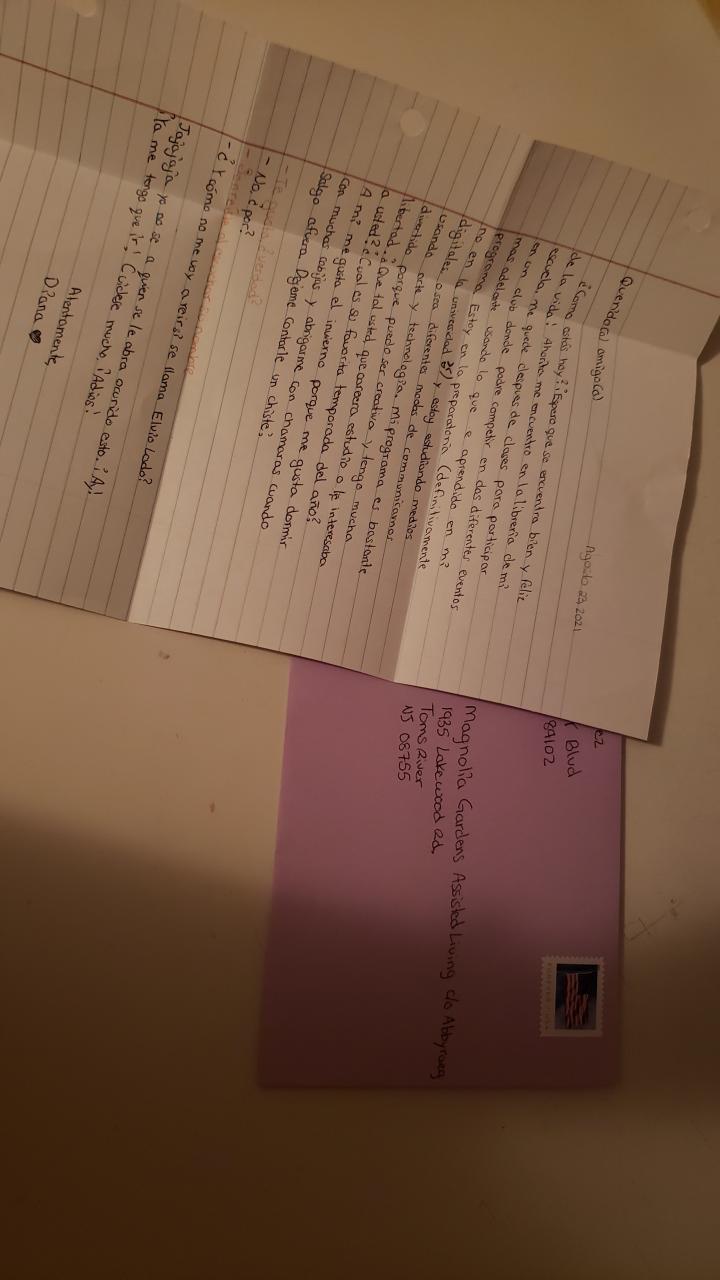 Agosto 23, 2021
Querido(a) amigo(a)
¿Como estás hoy? ¡Espero que se encuentra bien y feliz
de la vida! Ahorita me encuentro en la librería de mi
escuela, me quede despues de clases para participar
en un club donde podre competir en dos diferentes eventos
mas adelante usando lo que e aprendido en mi
programa. Estoy en la preparatoria (definitivamente
no en la universidad) y estoy estudiando medios
digitales, o sea diferentes modos de communicarnos
usando arte y technologia. Mi programa es bastante
divertido, porque puedo ser creativa y tengo mucha
libertad. ¿Que tal usted, que carrera estudio o le interesaba
a usted? ¿Cual es su favorita temporada del año?
A mí me gusta el invierno porque me gusta dormir
con muchas cobijas y abrigarme con chamaras cuando
salgo afuera. Dejeme contarle un chiste:
- No, ¿por?
- ¿Y cómo no me voy a reir si se llama Elvio Lado?
Jajajaja yo no se a quien se le abra ocurrido esto. ¡Ay!
¡Ya me tengo que ir! Cuidese mucho, ¡Adios!
Atentamente
Diana
ez
Blvd
84102
Magnolia Gardens Assisted Living c/o
1935 Lakewood Rd,
Toms River
NJ 08755